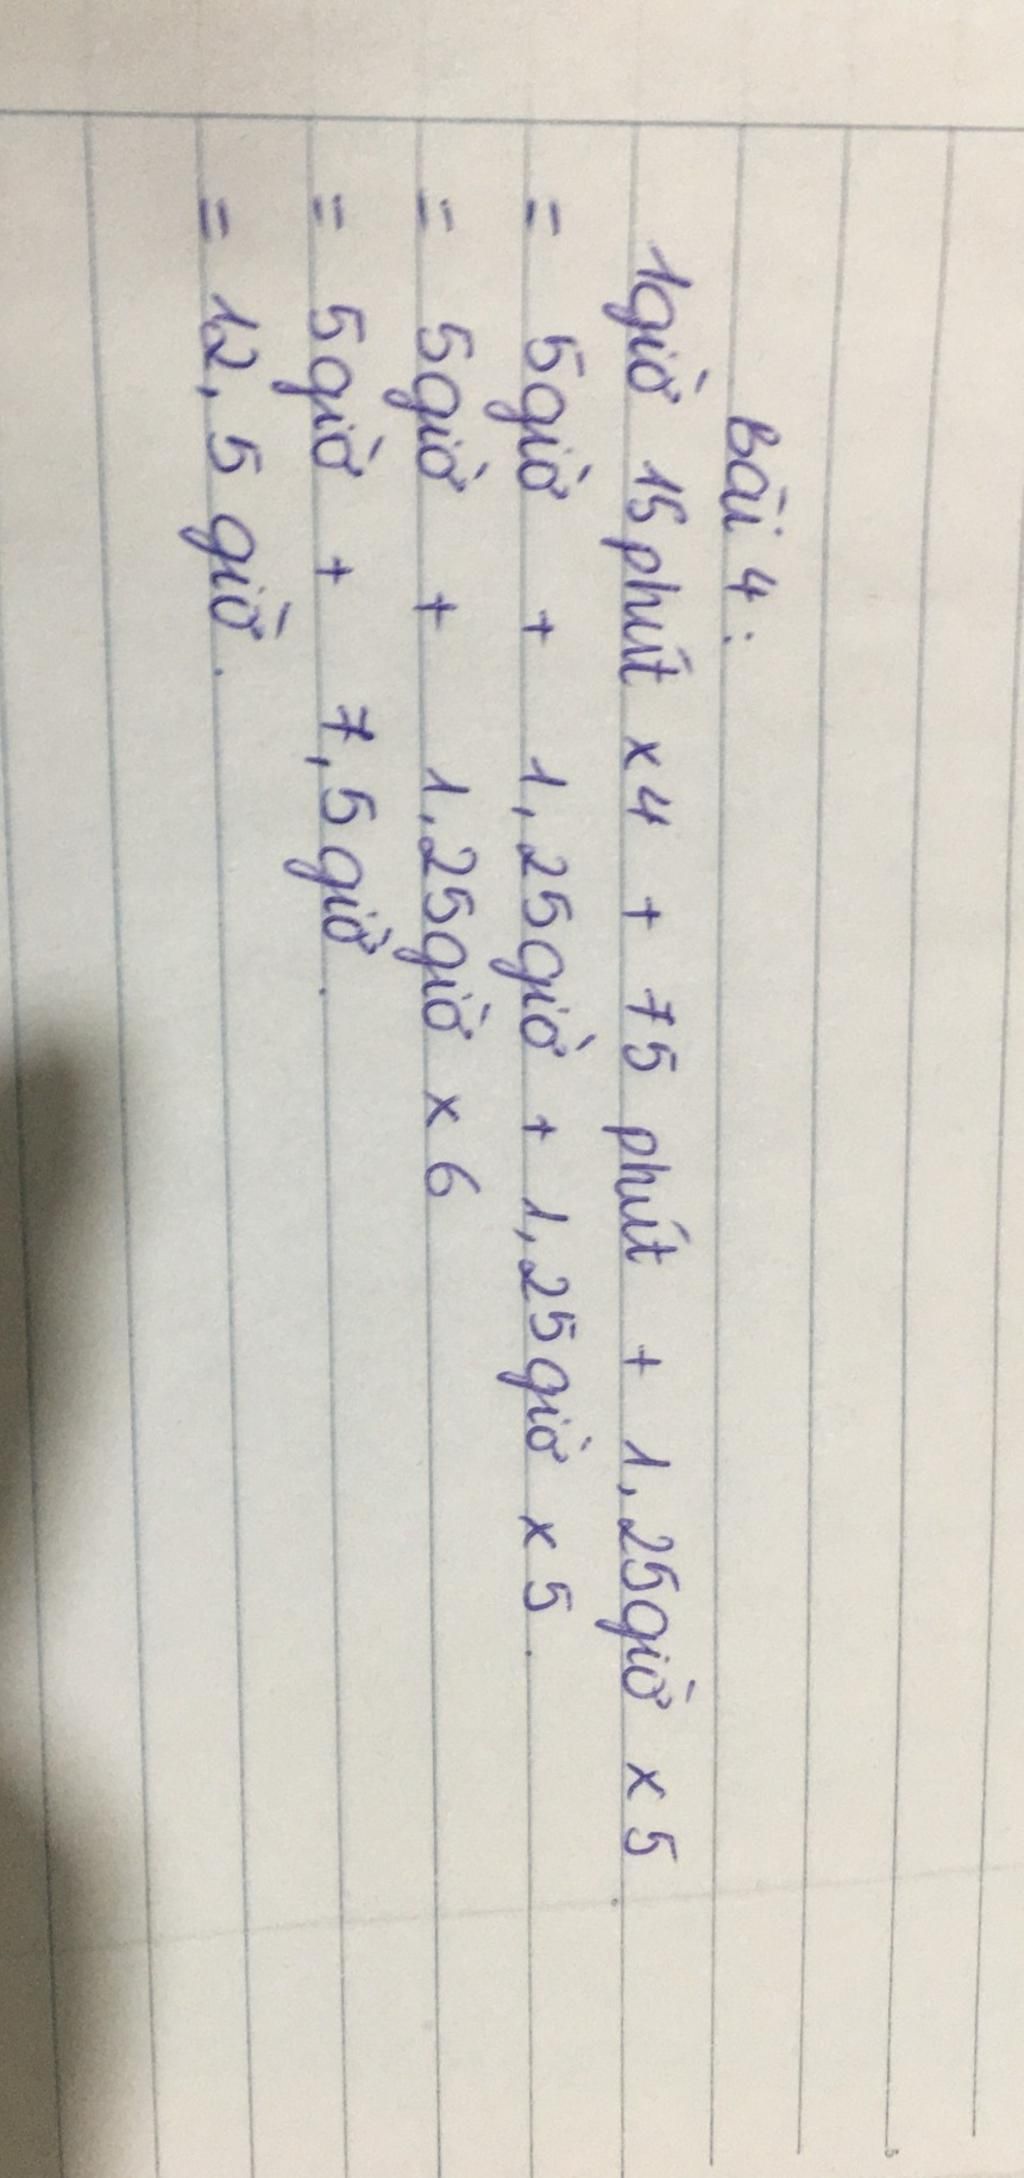 Bài 4:
1giờ 15phút x4 + 75 phút + 1,25giờ x 5
= 5giờ + 1,25giờ + 1,25giờ x 5.
= 5giờ + 1,25giờ x 6
= 5giờ + 7,5giờ.
= 12,5 giờ.